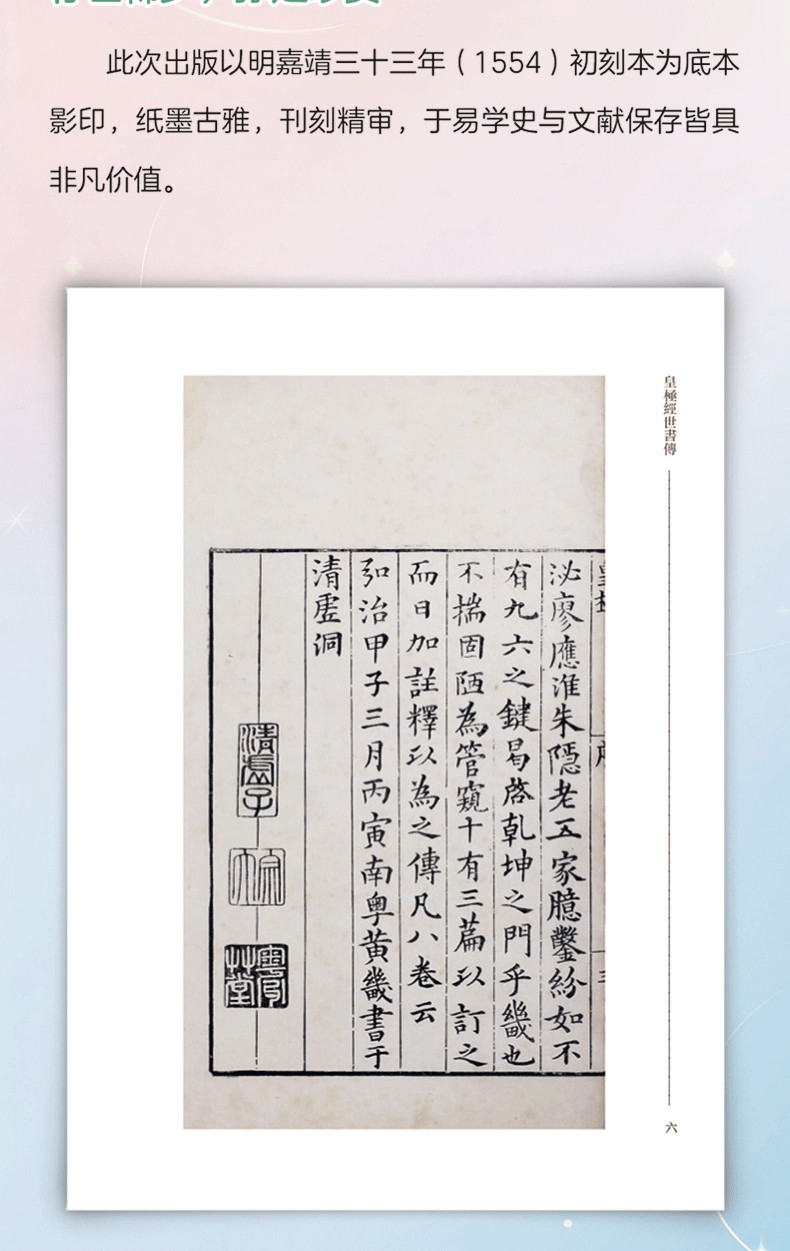 此次出版以明嘉靖三十三年（1554）初刻本为底本
影印，纸墨古雅，刊刻精审，于易学史与文献保存皆具
非凡价值。
皇極經世書傳
泌廖應淮朱隱老五家臆鑿紛如不
有九六之鍵曷啓乾坤之門乎畿也
不揣固陋為管窺十有三篇以訂之
而日加註釋以為之傳凡八卷云
弘治甲子三月丙寅南粤黄畿書于
清虛洞
清虛子
六